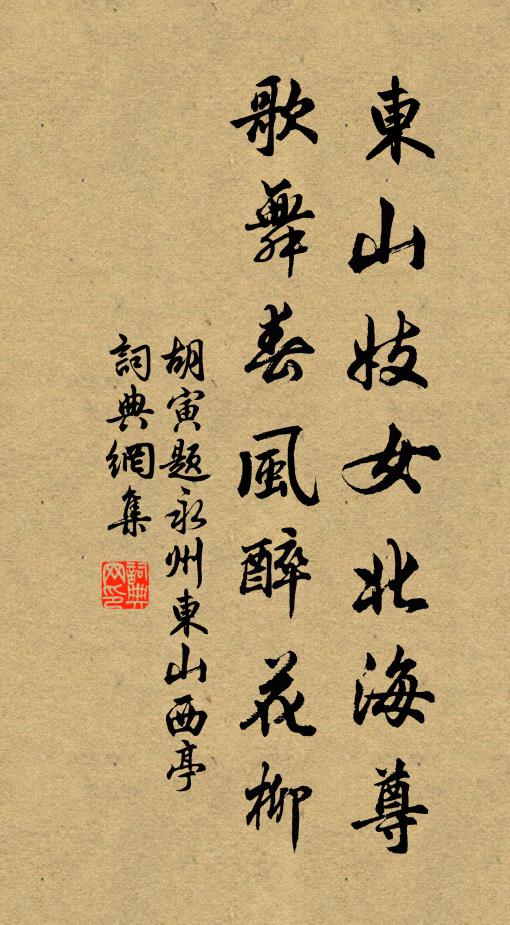 東山妓女北海尊
歌舞春風醉花柳
胡寅題永州東山西亭
詞典網集
詞典网印